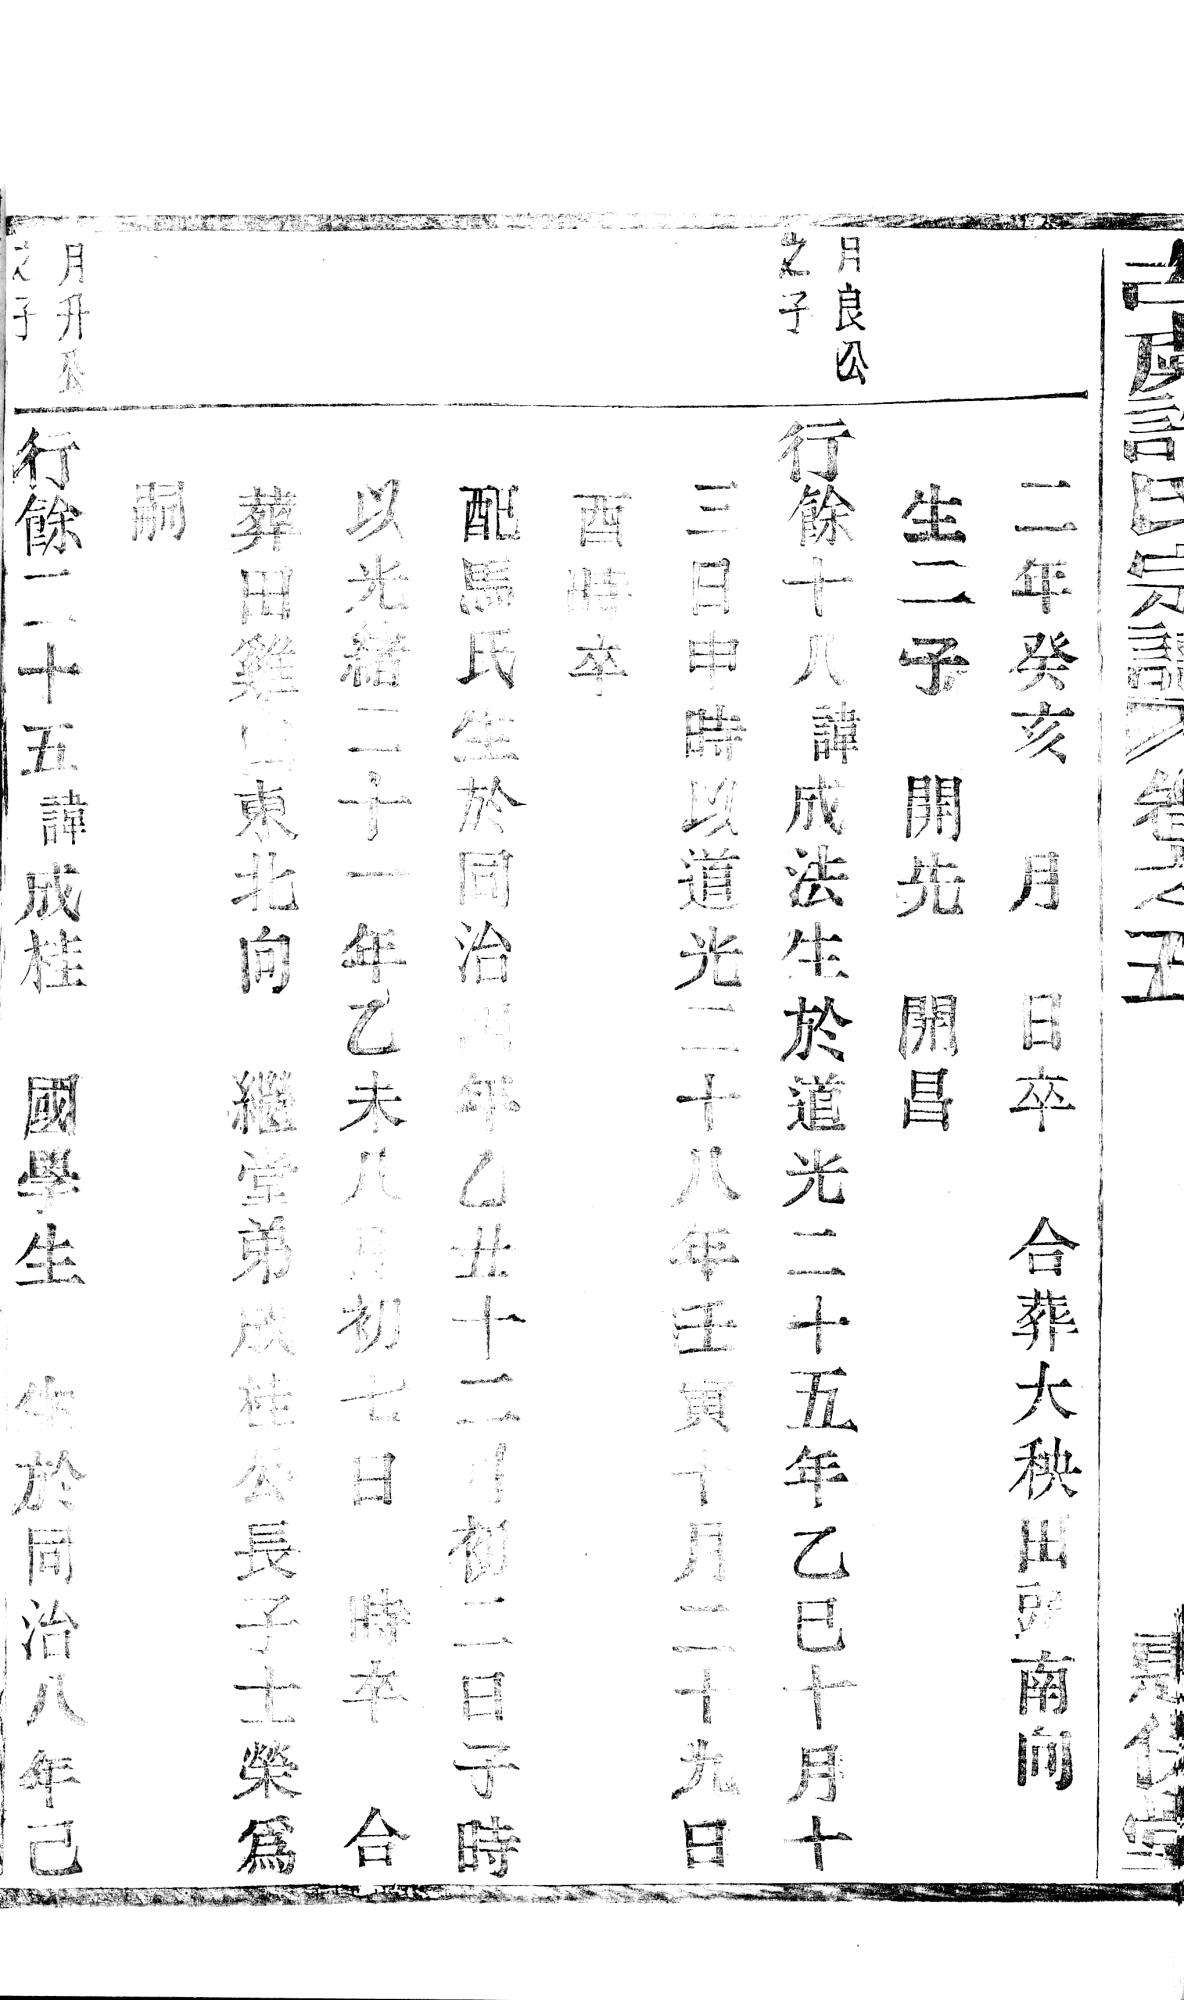 氏宗譜 卷之五
堂
二年癸亥 月 日卒 合葬大秧田頭南向
生二子 開先 開昌
月良公
之子
行餘十八諱成法生於道光二十五年乙巳十月十
三日申時以道光二十八年壬寅十月二十九日
酉時卒
配馬氏生於同治四年乙丑十二月初二日子時
以光緒二十一年乙未八月初七日 時卒 合
葬田雞山東北向 繼堂弟成桂公長子士榮爲
嗣
月升公
之子
行餘二十五諱成桂 國學生 生於同治八年己